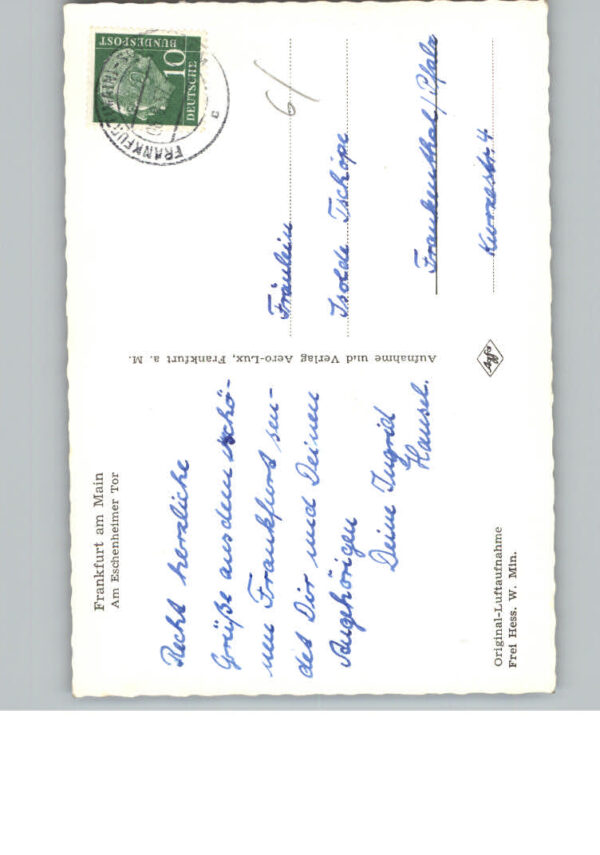 Frankfurt am Main
Am Eschenheimer Tor
Recht herzliche
Grüße aus dem schö-
nen Frankfurt sen-
det Dir und Deinen
Angehörigen
Deine Ingrid
Hansel.
Original-Luftaufnahme
Frei Hess. W. Min.
Aufnahme und Verlag Aero-Lux, Frankfurt a. M.
Agfa
DEUTSCHE
BUNDESPOST
10
FRANKFURT
c
6/
Fräulein
Isolde Tschöpe
Frankenthal/Pfalz